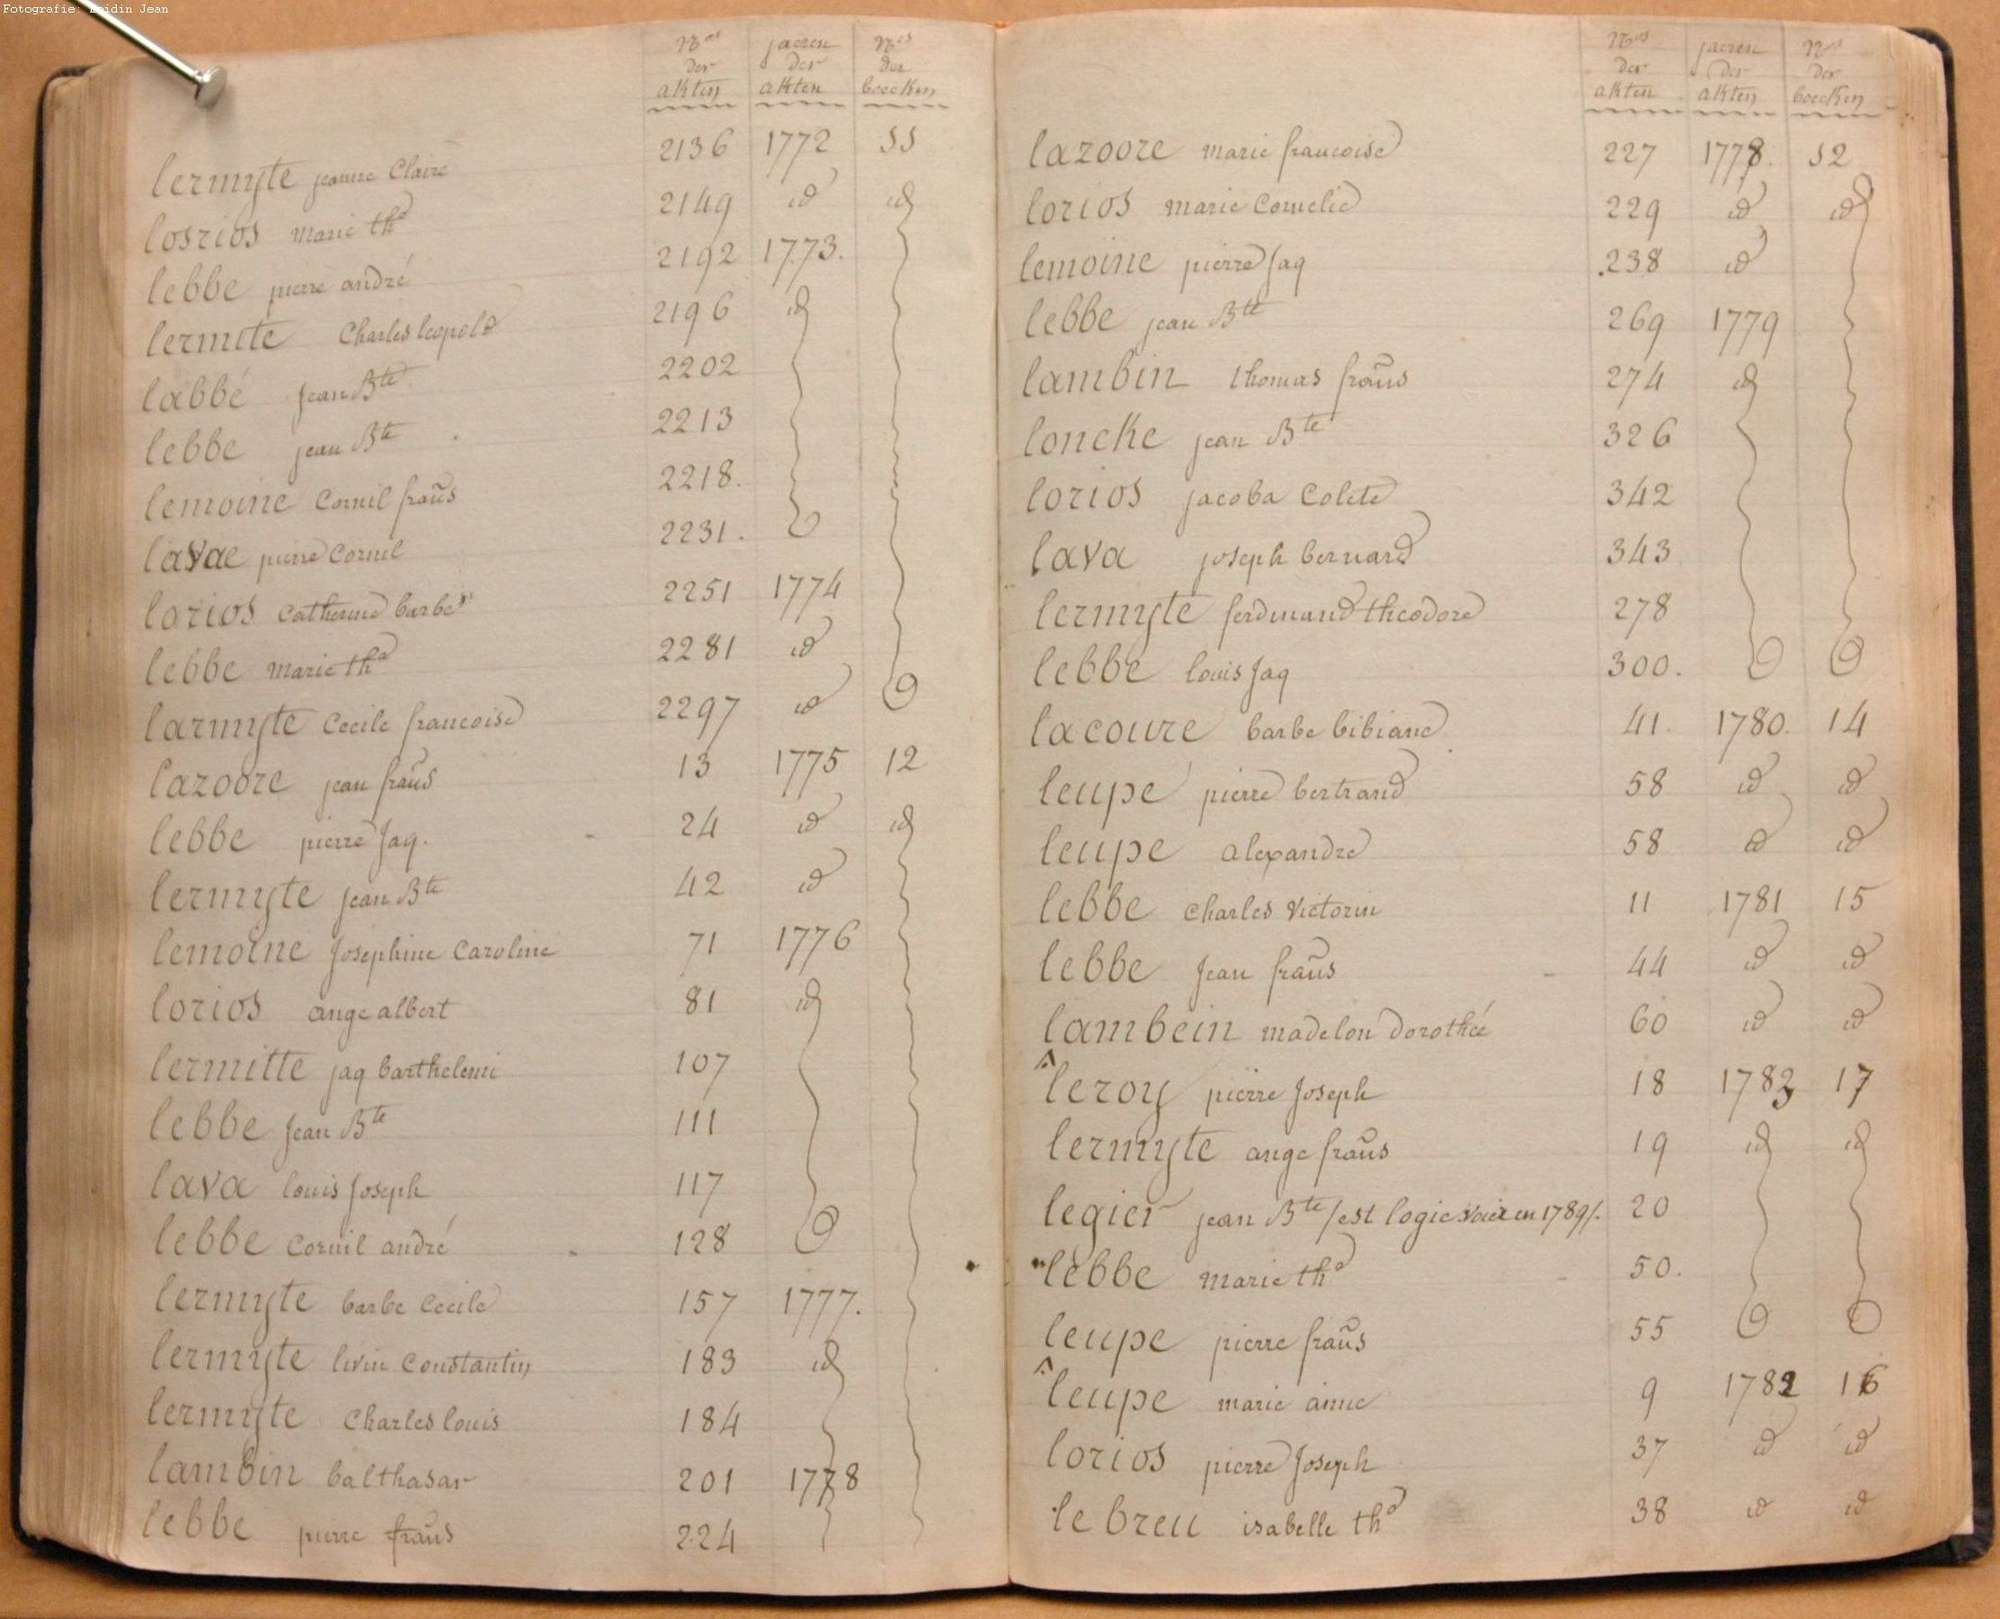 Fotografie: Laidin Jean
Nos der akten jaeren der akten Nos der boecken
lermyte jeanne Claire 2136 1772 55
losrios marie tha 2149 id id
lebbe pierre andré 2192 1773.
lermite Charles leopold 2196 id
labbé jean Bte 2202
lebbe jean Bte 2213
lemoine Cornil fraûs 2218.
lavae pierre Cornil 2231.
lorios Catherine barbe 2251 1774
lebbe marie tha 2281 id
larmyte Cecile francoise 2297 id
lazoore jean fraûs 13 1775 12
lebbe pierre Jaq. 24 id id
lermyte jean Bte 42 id
lemoine Josephine Caroline 71 1776
lorios ange albert 81 id
lermitte jaq barthelemi 107
lebbe Jean Bte 111
lava louis Joseph 117
lebbe Cornil andré 128
lermyte barbe Cecile 157 1777.
lermyte livin Constantin 183 id
lermyte Charles louis 184
lambin balthasar 201 1778
lebbe pierre fraûs 224
Nos der akten jaeren der akten Nos der boecken
lazoore marie francoise 227 1778. 52
lorios marie Cornelie 229 id id
lemoine pierre Jaq 238 id
lebbe jean Bte 269 1779
lambin thomas fraûs 274 id
loncke jean Bte 326
lorios jacoba Colete 342
lava joseph bernard 343
lermyte ferdinand theodore 278
lebbe louis Jaq 300.
lacoure barbe bibiane 41. 1780. 14
leupe pierre bertrand 58 id id
leupe alexandre 58 id id
lebbe Charles Victorin 11 1781 15
lebbe Jean fraûs 44 id id
lambein madelon dorothée 60 id id
leroy pierre Joseph 18 1783 17
lermyte ange fraûs 19 id id
legier jean Bte /est logie voir en 1789/. 20
lebbe marie tha 50.
leupe pierre fraûs 55
leupe marie anne 9 1782 16
lorios pierre Joseph 37 id id
le breu isabelle tha 38 id id